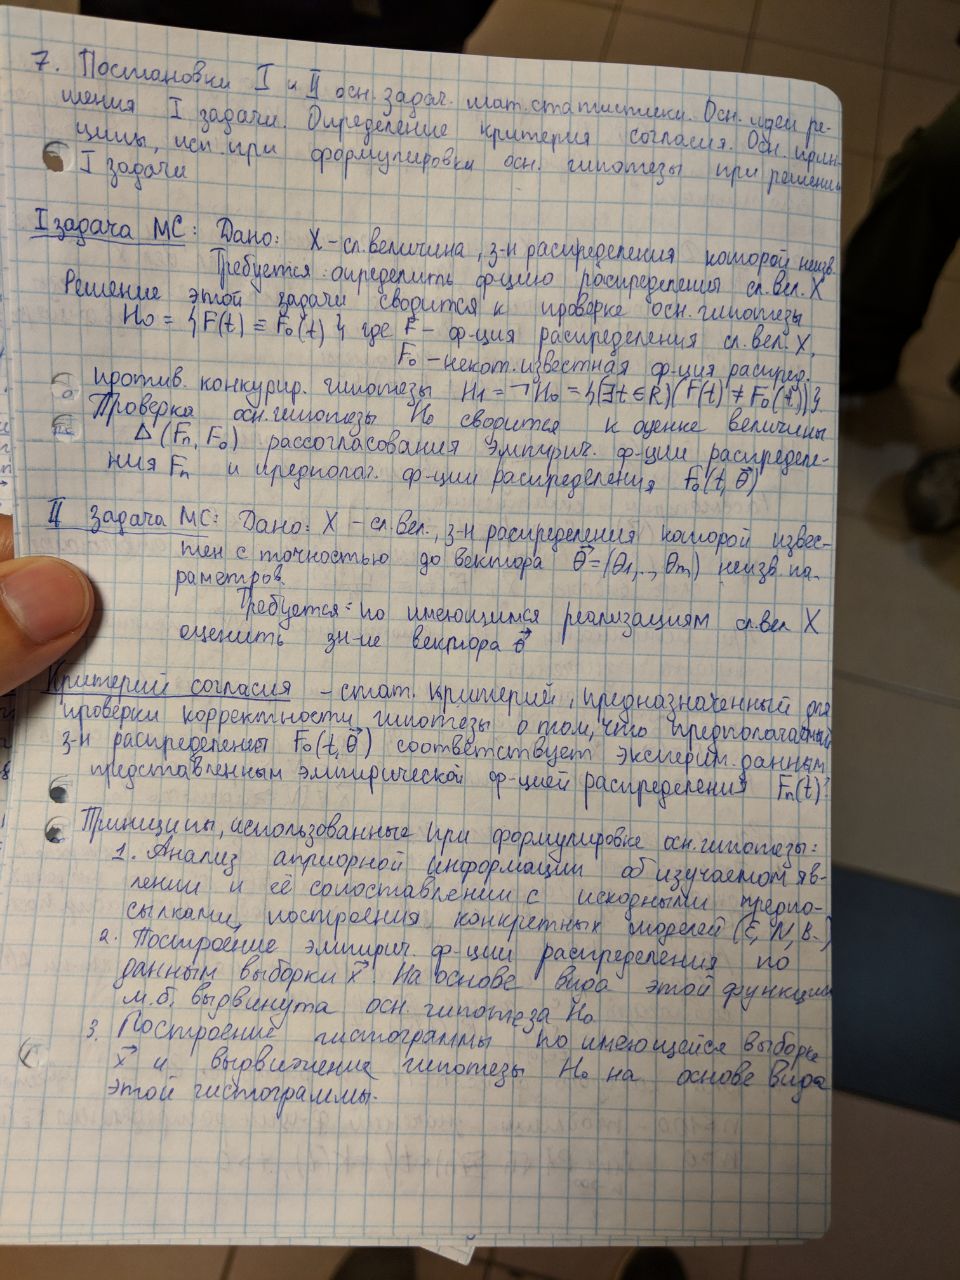 7. Постановки I и II осн. задач. мат. статистики. Осн. идеи ре-
шения I задачи. Определение критерия согласия. Осн. прин-
ципы, исп. при формулировки осн. гипотезы при решении
I задачи
I задача МС: Дано: X - сл. величина, з-н распределения которой неизв.
Требуется: определить ф-цию распределения сл. вел. X
Решение этой задачи сводится к проверке осн. гипотезы
H₀ = {F(t) ≡ F₀(t)} где F - ф-ция распределения сл. вел. X,
F₀ - некот. известная ф-ция распред.
против. конкурир. гипотезы H₁ = ¬H₀ = {(∃t ∈ R)(F(t) ≠ F₀(t))}
Проверка осн. гипотезы H₀ сводится к оценке величины
Δ(Fₙ, F₀) рассогласования эмпирич. ф-ции распределе-
ния Fₙ и предполаг. ф-ции распределения F₀(t, θ⃗)
II задача МС: Дано: X - сл. вел., з-н распределения которой извес-
тен с точностью до вектора θ⃗ = (θ₁,.., θₘ) неизв. па-
раметров.
Требуется: по имеющимся реализациям сл. вел X
оценить зн-ие вектора θ⃗
Критерий согласия - стат. критерий, предназначенный для
проверки корректности гипотезы о том, что предполагаемый
з-н распределения F₀(t, θ⃗) соответствует эксперим. данным
представленным эмпирической ф-цией распределения Fₙ(t).
Принципы, использованные при формулировке осн. гипотезы:
1. Анализ априорной информации об изучаемом яв-
лении и её сопоставлении с исходными предпо-
сылками, построения конкретных моделей
2. Построение эмпирич. ф-ции распределения по
данным выборки x⃗. На основе вида этой функции
м.б. выдвинута осн. гипотеза H₀
3. Построение гистограммы по имеющейся выборке
x⃗ и выдвижение гипотезы H₀ на основе вида
этой гистограммы.